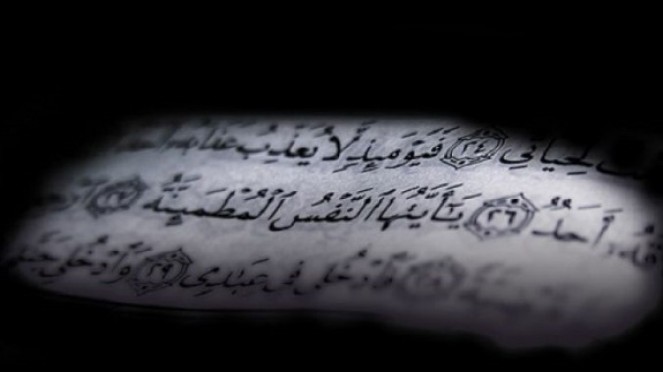 لِحَيَاتِي ٢٤ فَيَوْمَئِذٍ لَّا يُعَذِّبُ عَذَابَهُ
أَحَدٌ ٢٦ يَٰٓأَيَّتُهَا ٱلنَّفْسُ ٱلْمُطْمَئِنَّةُ ٢٧
فَٱدْخُلِي فِي عِبَٰدِي ٢٩ وَٱدْخُلِي